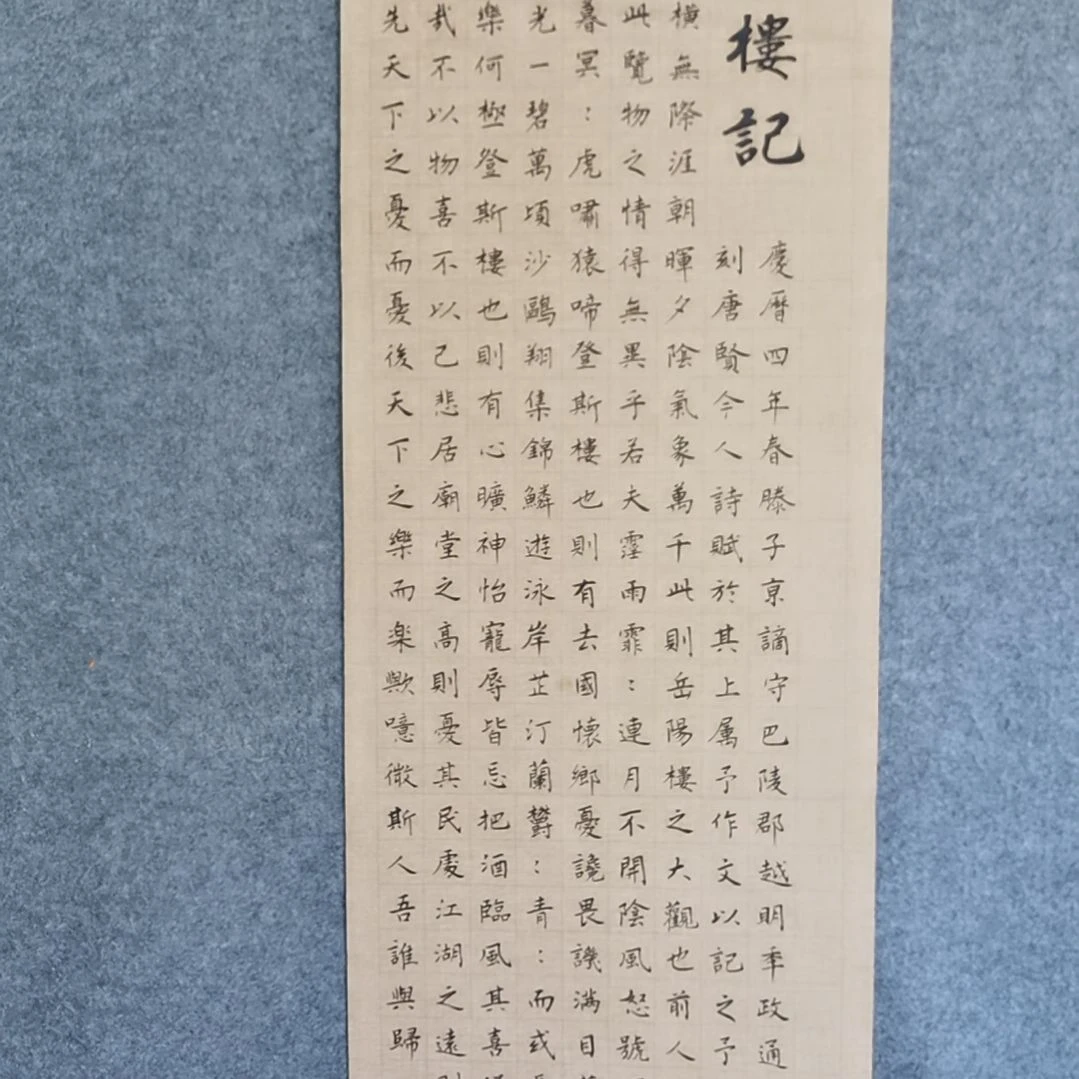 樓記
慶曆四年春滕子京謫守巴陵郡越明年政通
刻唐賢今人詩賦於其上属予作文以記之予
橫無際涯朝暉夕陰氣象萬千此則岳陽樓之大觀也前人
此覽物之情得無異乎若夫霪雨霏：連月不開陰風怒號
暮冥：虎嘯猿啼登斯樓也則有去國懷鄉憂讒畏譏滿目
光一碧萬頃沙鷗翔集錦鱗遊泳岸芷汀蘭欝：青：而或
樂何極登斯樓也則有心曠神怡寵辱皆忘把酒臨風其喜
哉不以物喜不以己悲居廟堂之高則憂其民處江湖之遠
先天下之憂而憂後天下之樂而楽歟噫微斯人吾誰與歸